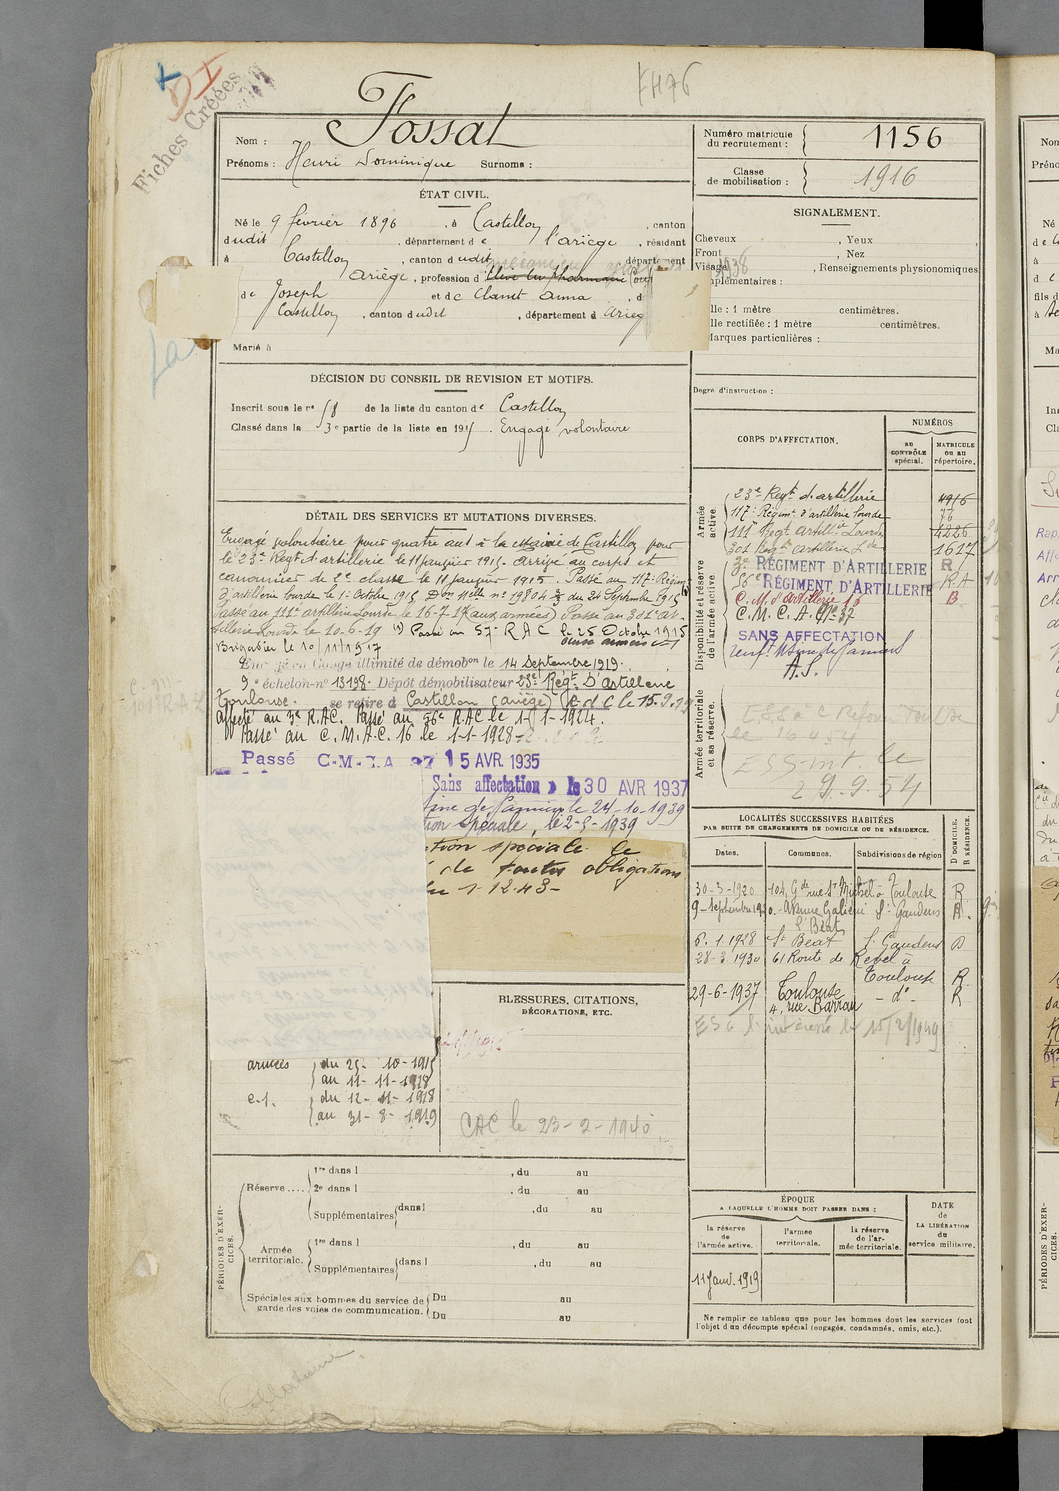 Fiches Créées
DI
FH76
Nom : Fossat
Prénoms : Henri Dominique Surnoms :
Numéro matricule du recrutement : 1156
Classe de mobilisation : 1916
ÉTAT CIVIL.
Né le 9 février 1896 , à Castillon , canton
dudit , département de l'ariège , résidant
à Castillon , canton dudit , département
ariège , profession d'
de Joseph et de Clanet Anna , d
Castillon , canton dudit , département d Arieg
Marié à
SIGNALEMENT.
Cheveux , Yeux ,
Front , Nez
Visage , Renseignements physionomiques
mplémentaires :
lle : 1 mètre centimètres.
lle rectifiée : 1 mètre centimètres.
Marques particulières :
Degré d'instruction :
DÉCISION DU CONSEIL DE REVISION ET MOTIFS.
Inscrit sous le n° 58 de la liste du canton de Castillon
Classé dans la 3e partie de la liste en 1915. Engagé volontaire
DÉTAIL DES SERVICES ET MUTATIONS DIVERSES.
Engagé volontaire pour quatre ans à la mairie de Castillon pour
le 23e Regt d'artillerie le 11 janvier 1915. Arrivé au corps et
canonnier de 2e classe le 11 janvier 1915. Passé au 117e Régim
d'artillerie lourde le 1er Octobre 1915 Don Mlle n° 19804 du 24 Septembre 1915
Passé au 111e artillerie Lourde le 16-7-17 (aux armées) Passé au 301e ar-
tillerie Lourde le 10-6-19 (1) Passé au 57e R A C le 25 Octobre 1915
Brigadier le 10/11/1917
Envoyé en Congé illimité de démobon le 14 Septembre 1919.
9e échelon-n° 13198. Dépôt démobilisateur 23e Régt D'artillerie
Toulouse. se retire à Castillon (ariège) C d C le 15.9.19
affecté au 3e R.A.C. Passé au 56e R.A.C le 1-1-1924.
Passé au C.M.A.C. 16 le 1-1-1928
Passé C-M-I.A 37 15 AVR. 1935
Sans affectation le 30 AVR 1937
sine de Pamiers le 24-10-1939
tion Spéciale, le 2-9-1939
ction spéciale le
de toutes obligations
1-12-43-
CORPS D'AFFECTATION.
NUMÉROS
AU CONTRÔLE spécial.
MATRICULE OU AU répertoire.
Armée active.
23e Regt d'artillerie 4916
117e Régimt d'artillerie Lourde 76
111e Regt artillie Lourde 4226
301 Regt artillerie Lde 1627
Disponibilité et réserve de l'armée active.
3e RÉGIMENT D'ARTILLERIE R
56e RÉGIMENT D'ARTILLERIE R.A
C.M. d'Artillerie 16 B
C.M.C.A. n° 37
SANS AFFECTATION
renft Usine de Pamiers
A.S.
Armée territoriale et sa réserve.
le 16-4-54
ESS-mt. le
29.9.54
LOCALITÉS SUCCESSIVES HABITÉES
PAR SUITE DE CHANGEMENTS DE DOMICILE OU DE RÉSIDENCE.
Dates. Communes. Subdivisions de région
D DOMICILE. R RÉSIDENCE.
30-3-1920 104, Gde rue St Michel à Toulouse R
9-Septembre 1920 Avenue Galiéni St Gaudens R.
St Béat
6.1.1928 St Beat St Gaudens D
28-3-1930 61 Route de Revel à Toulouse R
29-6-1937 Toulouse 4, rue Barrau - do - R
15/2/1949
BLESSURES, CITATIONS,
DÉCORATIONS, ETC.
CAC le 23-2-1940
armées du 25- 10-1915
au 11- 11-1918
c.1. du 12- 11-1918
au 31- 8-1919
PÉRIODES D'EXERCICES.
Réserve.... 1re dans l , du au
2e dans l , du au
Supplémentaires dans l , du au
Armée territoriale. 1re dans l , du au
Supplémentaires dans l , du au
Spéciales aux hommes du service de garde des voies de communication. Du au
Du au
ÉPOQUE
A LAQUELLE L'HOMME DOIT PASSER DANS :
la réserve de l'armée active.
l'armée territoriale.
la réserve de l'armée territoriale.
DATE de LA LIBÉRATION du service militaire.
11 janv. 1919
Ne remplir ce tableau que pour les hommes dont les services font
l'objet d'un décompte spécial (engagés, condamnés, omis, etc.).